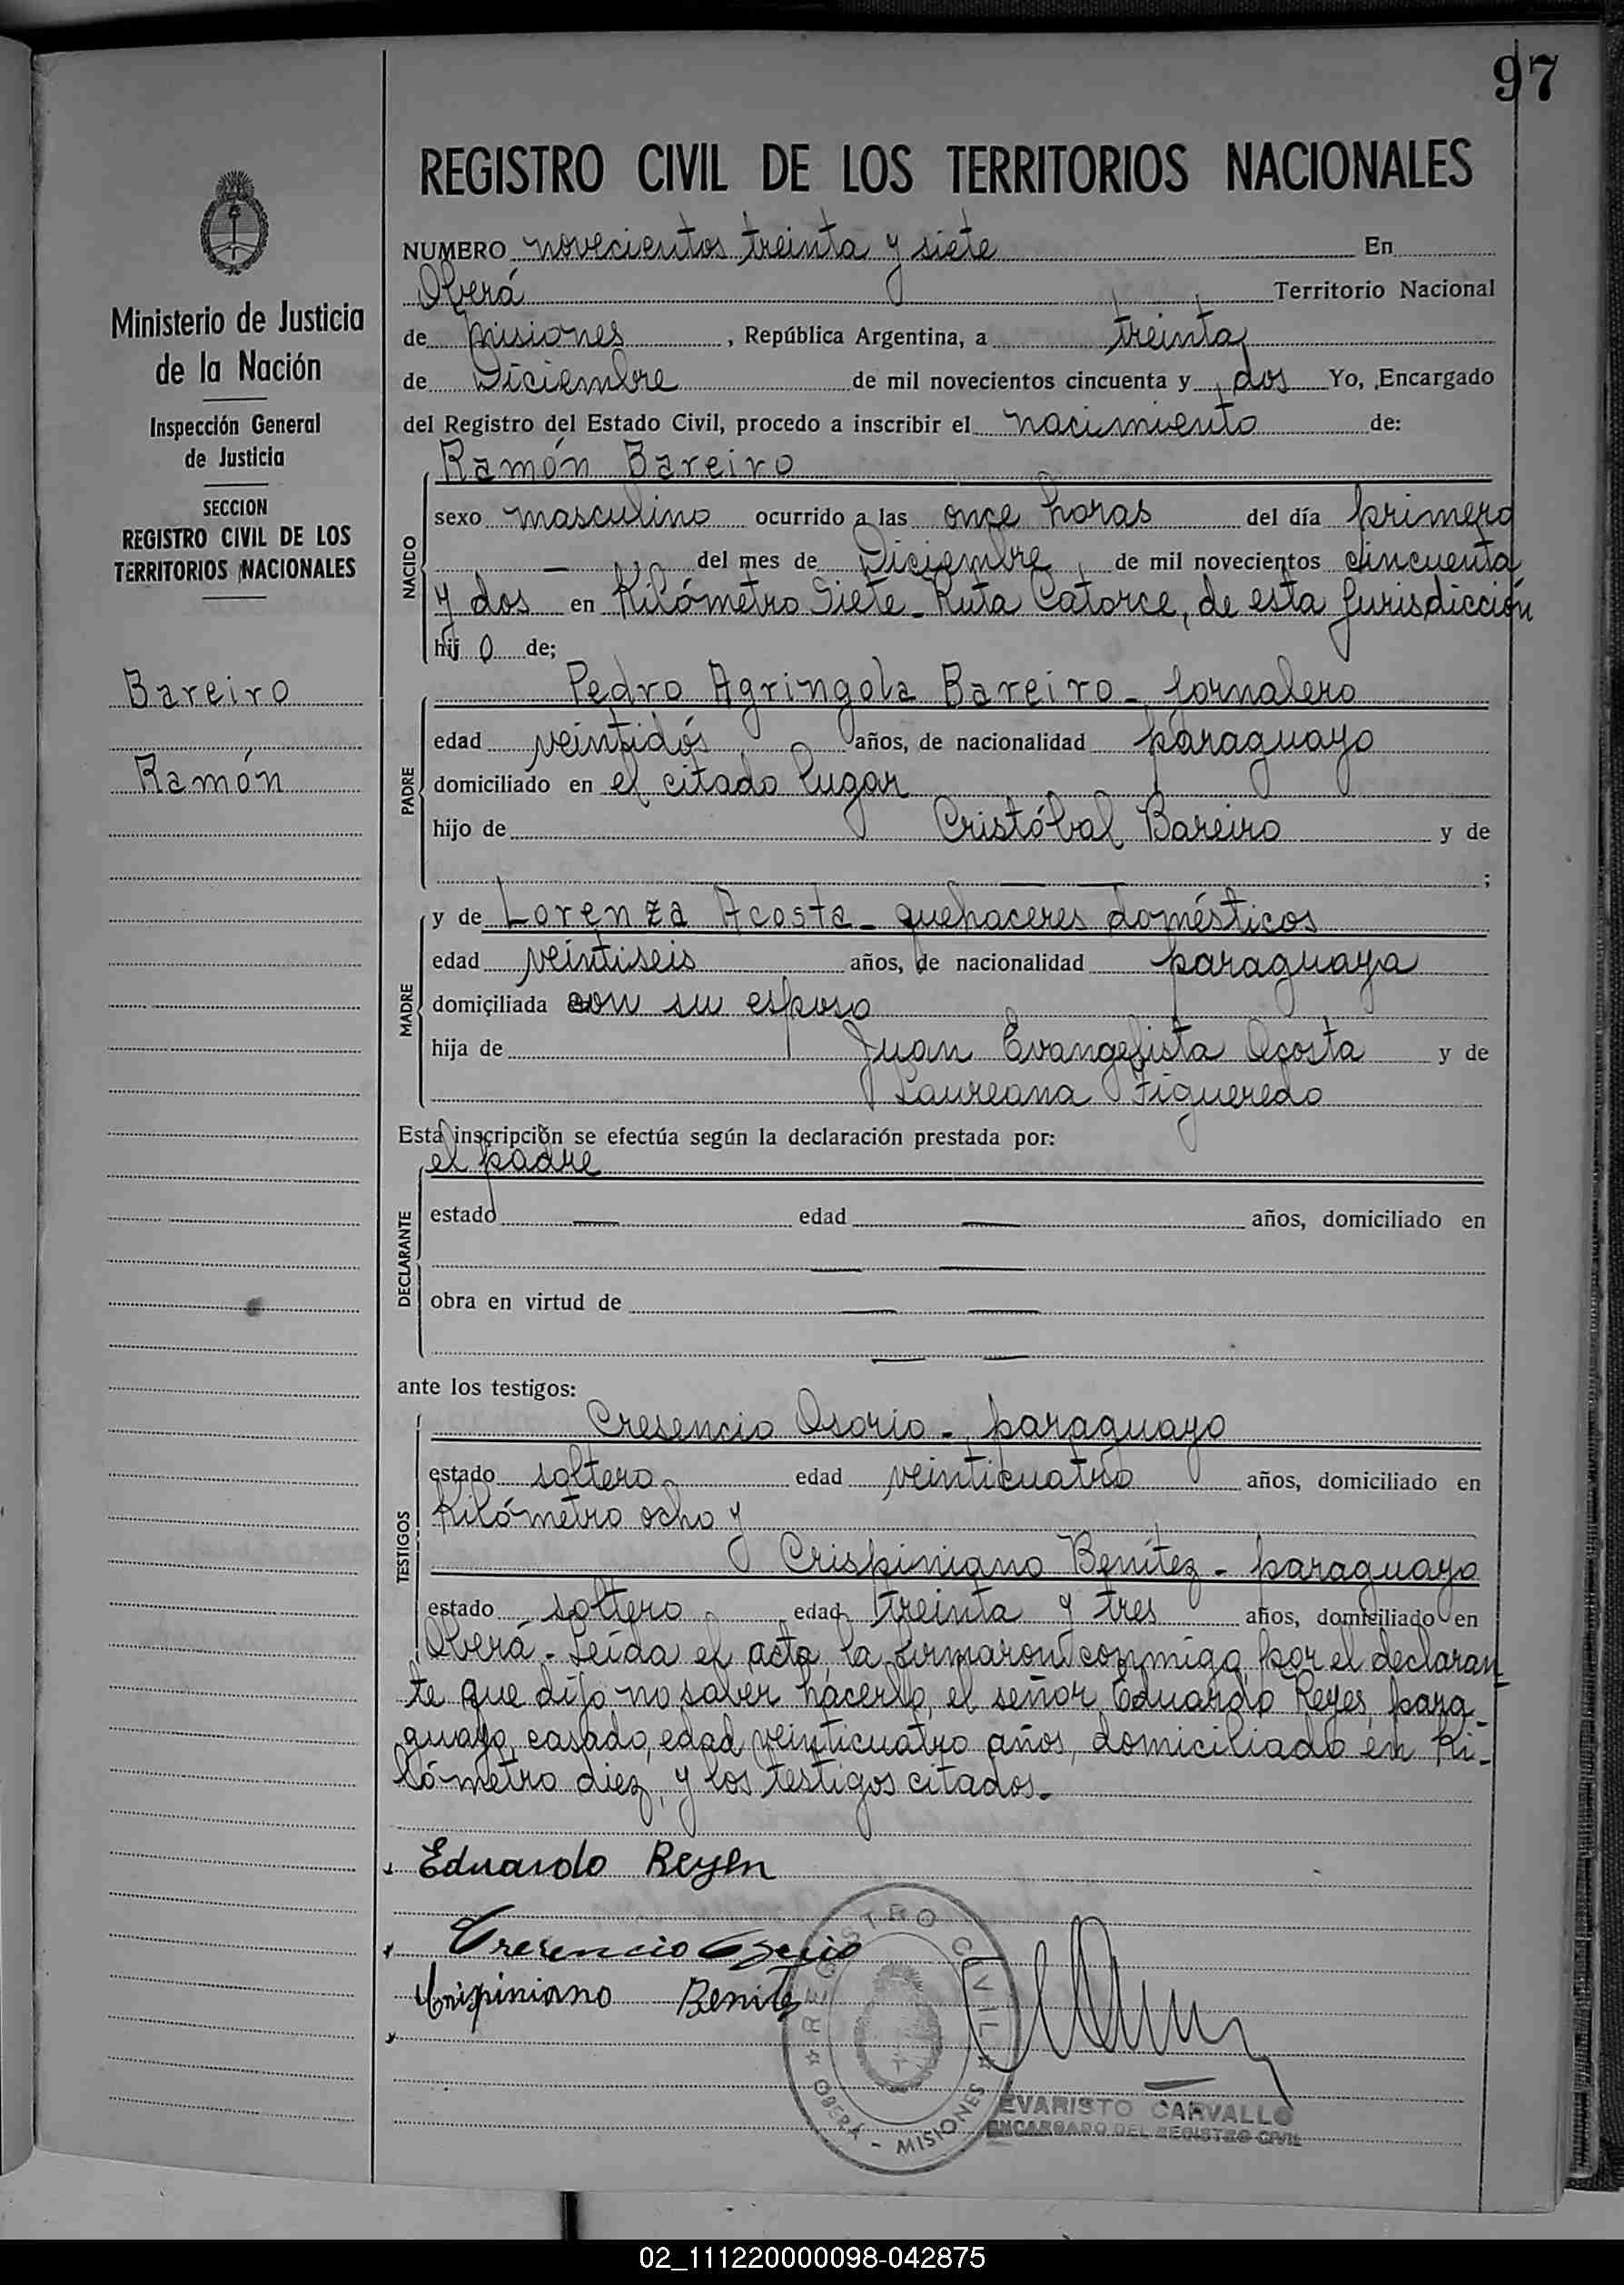 97
REGISTRO CIVIL DE LOS TERRITORIOS NACIONALES
Ministerio de Justicia
de la Nación
Inspección General
de Justicia
SECCION
REGISTRO CIVIL DE LOS
TERRITORIOS NACIONALES
Bareiro
Ramón
NUMERO novecientos treinta y siete En
Oberá Territorio Nacional
de Misiones, República Argentina, a treinta
de Diciembre de mil novecientos cincuenta y dos Yo, Encargado
del Registro del Estado Civil, procedo a inscribir el nacimiento de:
NACIDO
Ramón Bareiro
sexo masculino ocurrido a las once horas del día primero
— del mes de Diciembre de mil novecientos cincuenta
y dos en Kilómetro Siete - Ruta Catorce, de esta Jurisdicción
hijo de;
PADRE
Pedro Agringola Bareiro - Jornalero
edad veintidós años, de nacionalidad paraguayo
domiciliado en el citado lugar
hijo de Cristóbal Bareiro y de
— — ;
MADRE
y de Lorenza Acosta - quehaceres domésticos
edad veintiseis años, de nacionalidad paraguaya
domiciliada con su esposo
hija de Juan Evangelista Acosta y de
Laureana Figueredo
Esta inscripción se efectúa según la declaración prestada por:
DECLARANTE
el padre
estado — edad — años, domiciliado en
— —
obra en virtud de — —
— —
ante los testigos:
TESTIGOS
Cresencio Osorio - paraguayo
estado soltero edad veinticuatro años, domiciliado en
Kilómetro ocho y
Crispiniano Benítez - paraguayo
estado soltero edad treinta y tres años, domiciliado en
Oberá - Leída el acta, la firmaron conmigo, por el declaran
te que dijo no saber hacerlo, el señor Eduardo Reyes, para-
guayo, casado, edad veinticuatro años, domiciliado en Ki-
lómetro diez, y los testigos citados.
Eduardo Reyen
Cresencio Osorio
Crispiniano Benitez
REGISTRO CIVIL
OBERÁ - MISIONES
EVARISTO CARVALLO
ENCARGADO DEL REGISTRO CIVIL
02_111220000098-042875